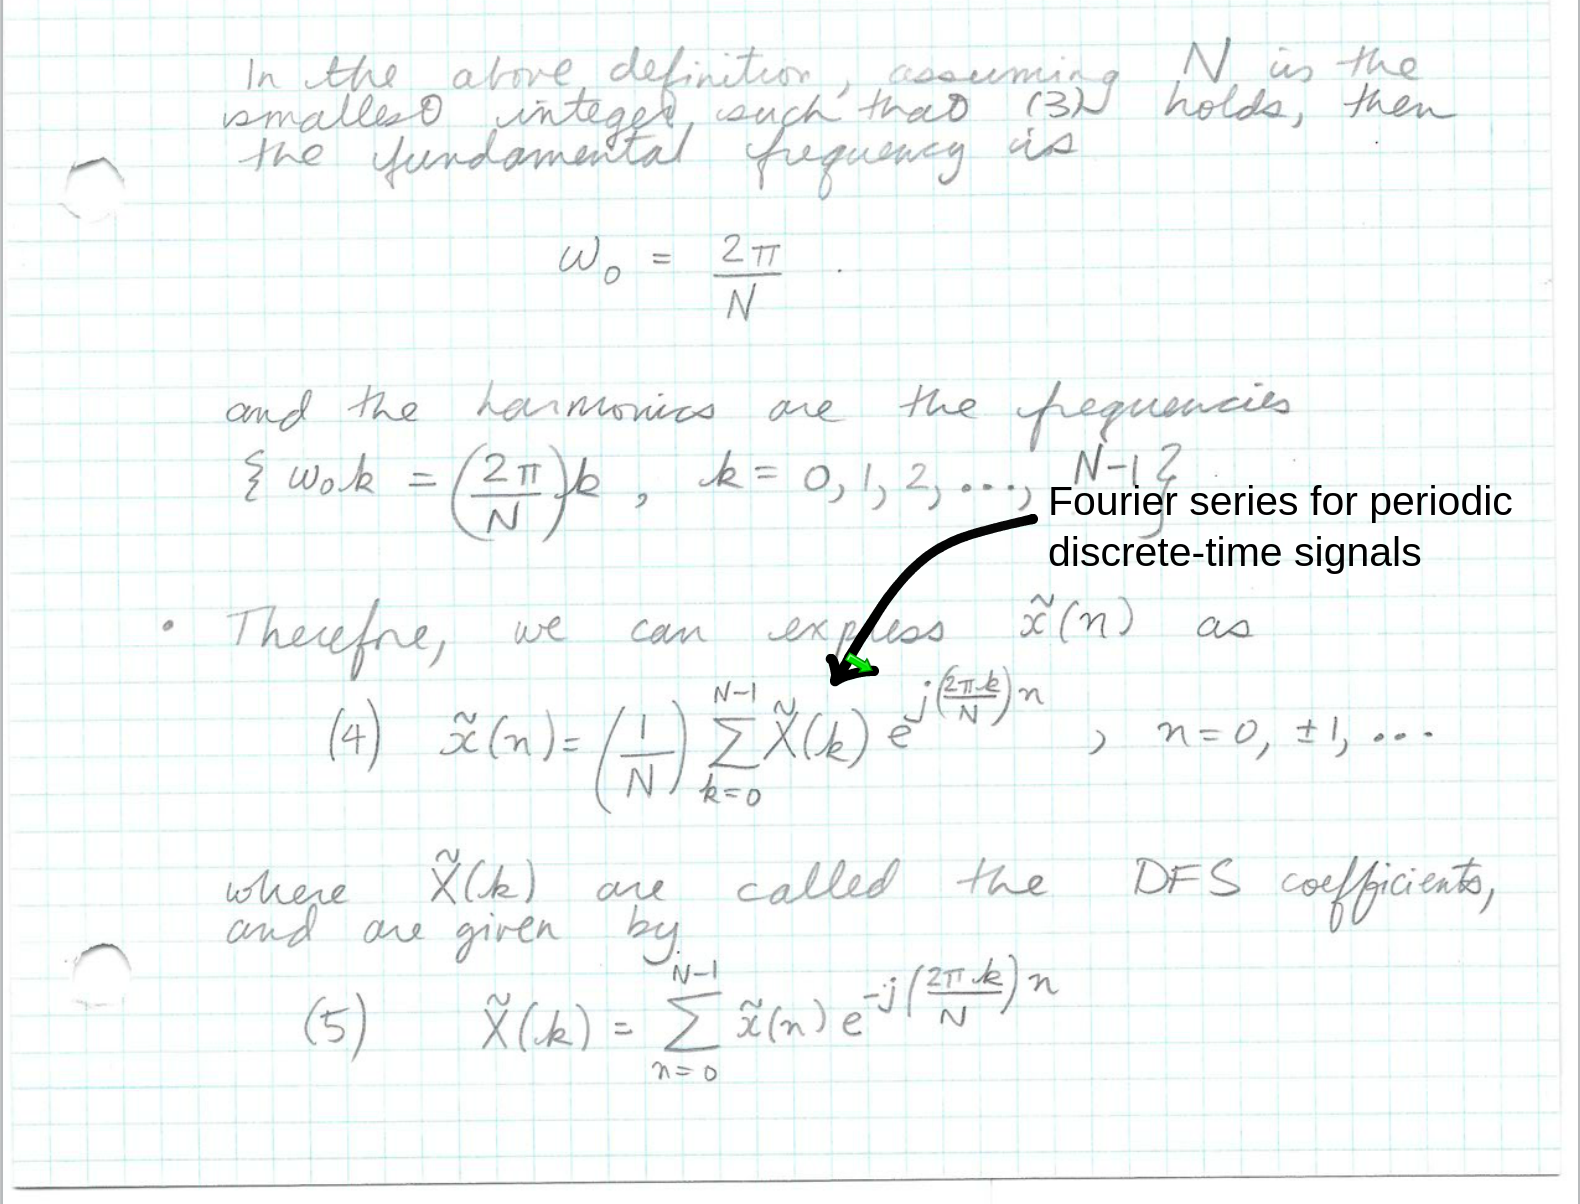 In the above definition, assuming N is the
smallest integer such that (3) holds, then
the fundamental frequency is
ω₀ = 2π/N .
and the harmonics are the frequencies
{ ω₀k = (2π/N)k , k = 0, 1, 2, ..., N-1 }
Fourier series for periodic
discrete-time signals
• Therefore, we can express x̃(n) as
(4) x̃(n) = (1/N) ∑_{k=0}^{N-1} X̃(k) e^{j(2πk/N)n} , n=0, ±1, ...
where X̃(k) are called the DFS coefficients,
and are given by
(5) X̃(k) = ∑_{n=0}^{N-1} x̃(n) e^{-j(2πk/N)n}